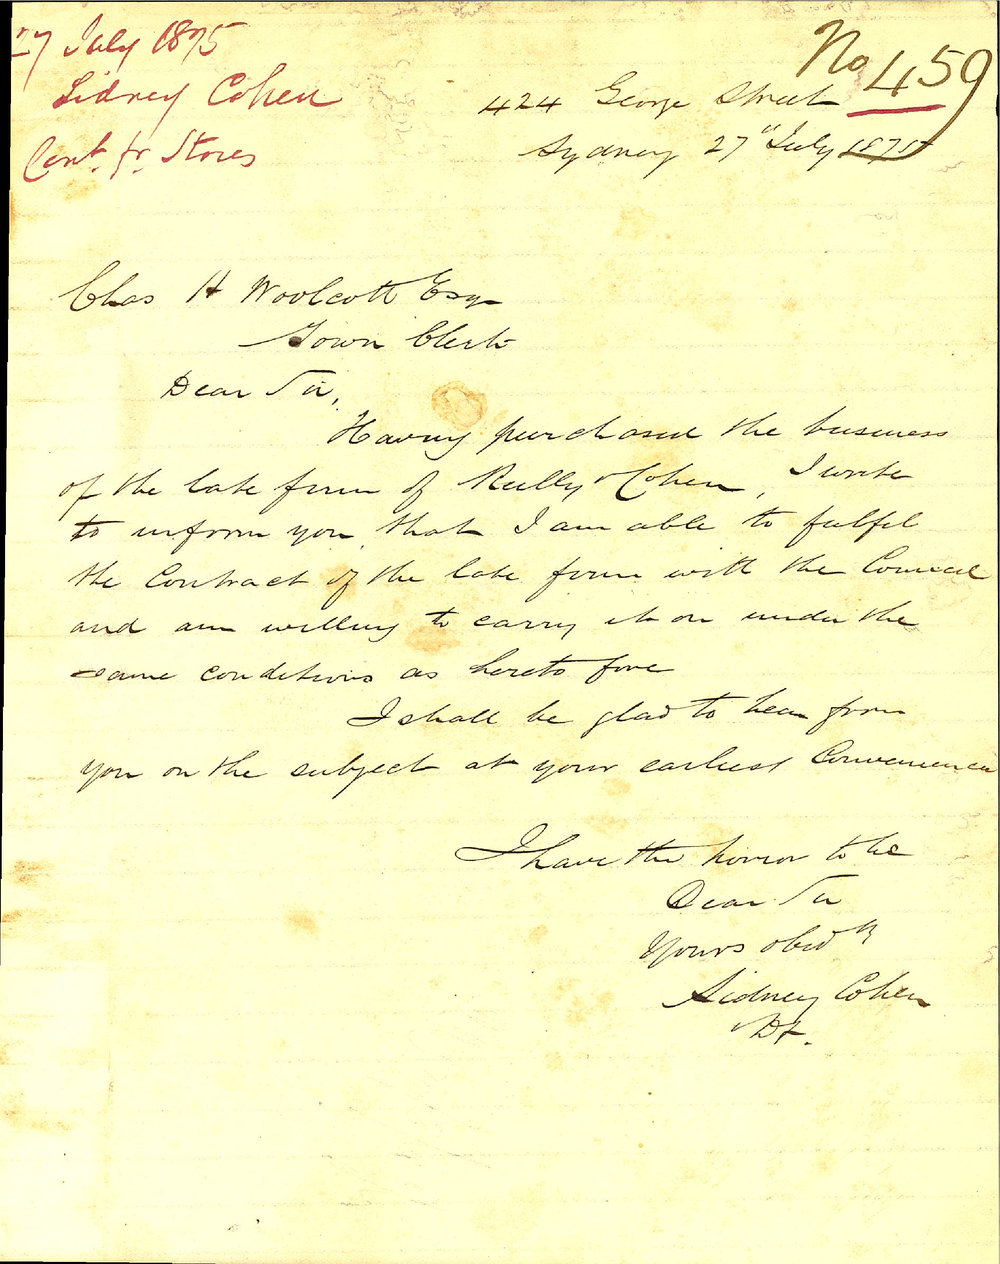 27 July 1875
Sidney Cohen
Cont. fr. Stores
No 459
424 George Street
Sydney 27" July 1875
Chas H Woolcott Esq
Town Clerk
Dear Sir,
Having purchased the business
of the late firm of Reilly & Cohen, I write
to inform you, that I am able to fulfil
the Contract of the late firm with the Council
and am willing to carry it on under the
same conditions as hereto fore
I shall be glad to hear from
you on the subject at your earliest Convenience
I have the honor to be
Dear Sir
Yours obed
Sidney Cohen